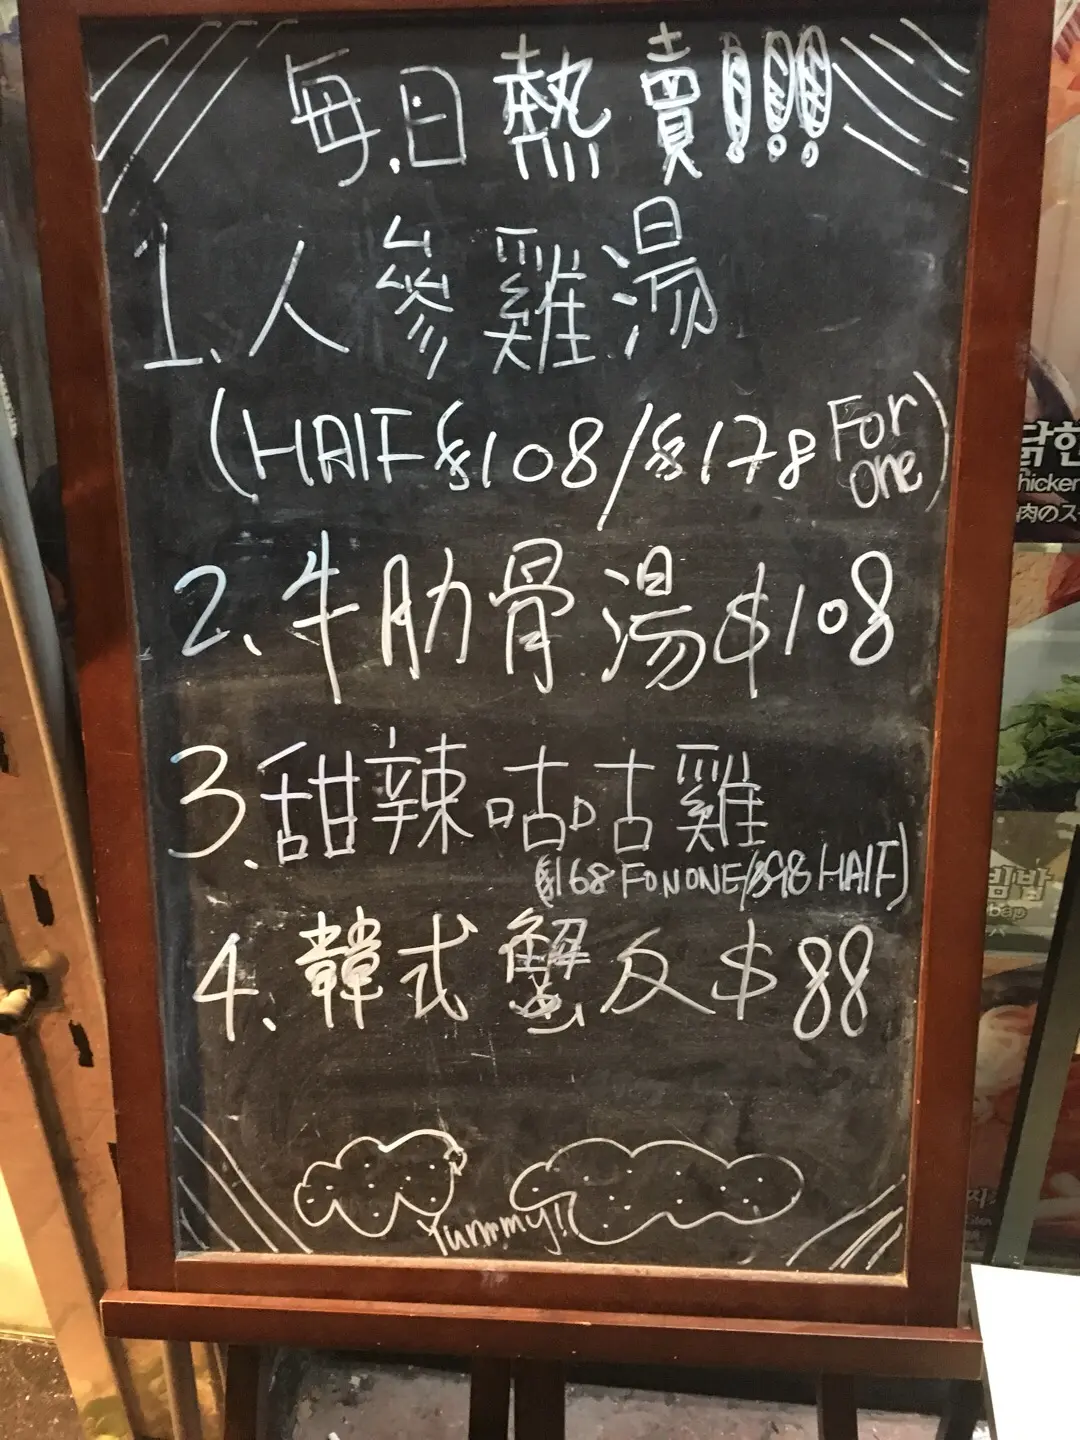 每日熱賣!!!
1. 人參雞湯
(HAlF $108/$178 For one)
2. 牛肋骨湯 $108
3. 甜辣咕咕雞
$168 FOR ONE/$98 HAlF)
4. 韓式蟹皿 $88
Yummmy!!
닭한
hicken
肉のス
빔밥
bap